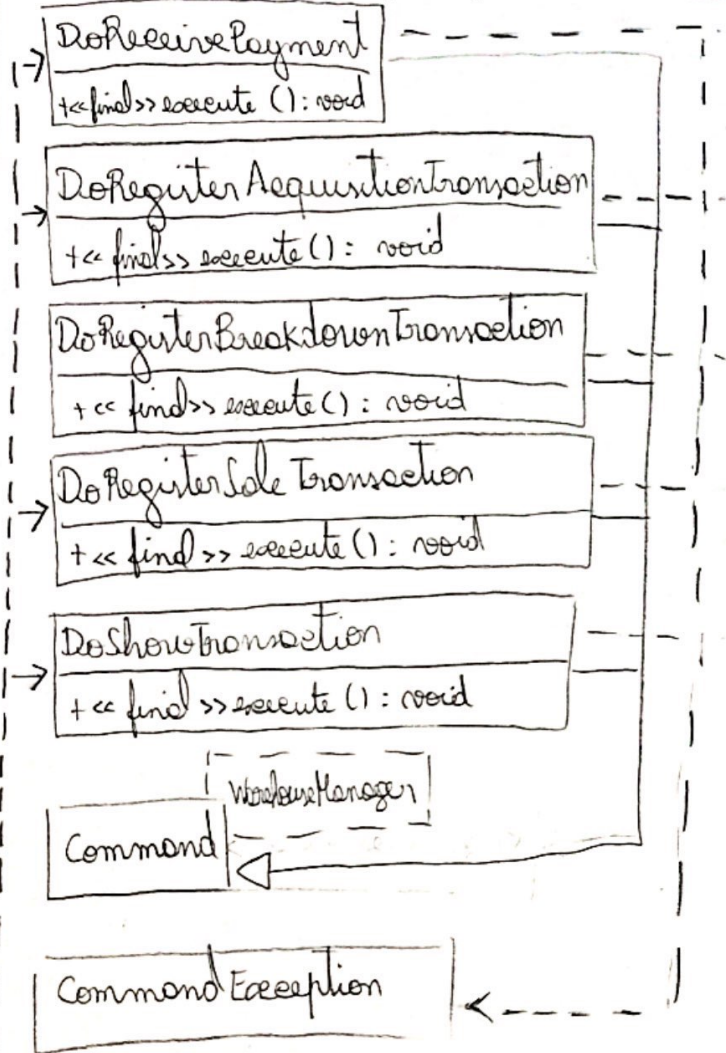 DoReceivePayment
+<<final>> execute () : void
DoRegisterAcquisitionTransaction
+<< final>> execute() : void
DoRegisterBreakdownTransaction
+ << final>> execute() : void
DoRegisterSaleTransaction
+ << final >> execute () : void
DoShowTransaction
+ << final >> execute () : void
WarehouseManager
Command
CommandException